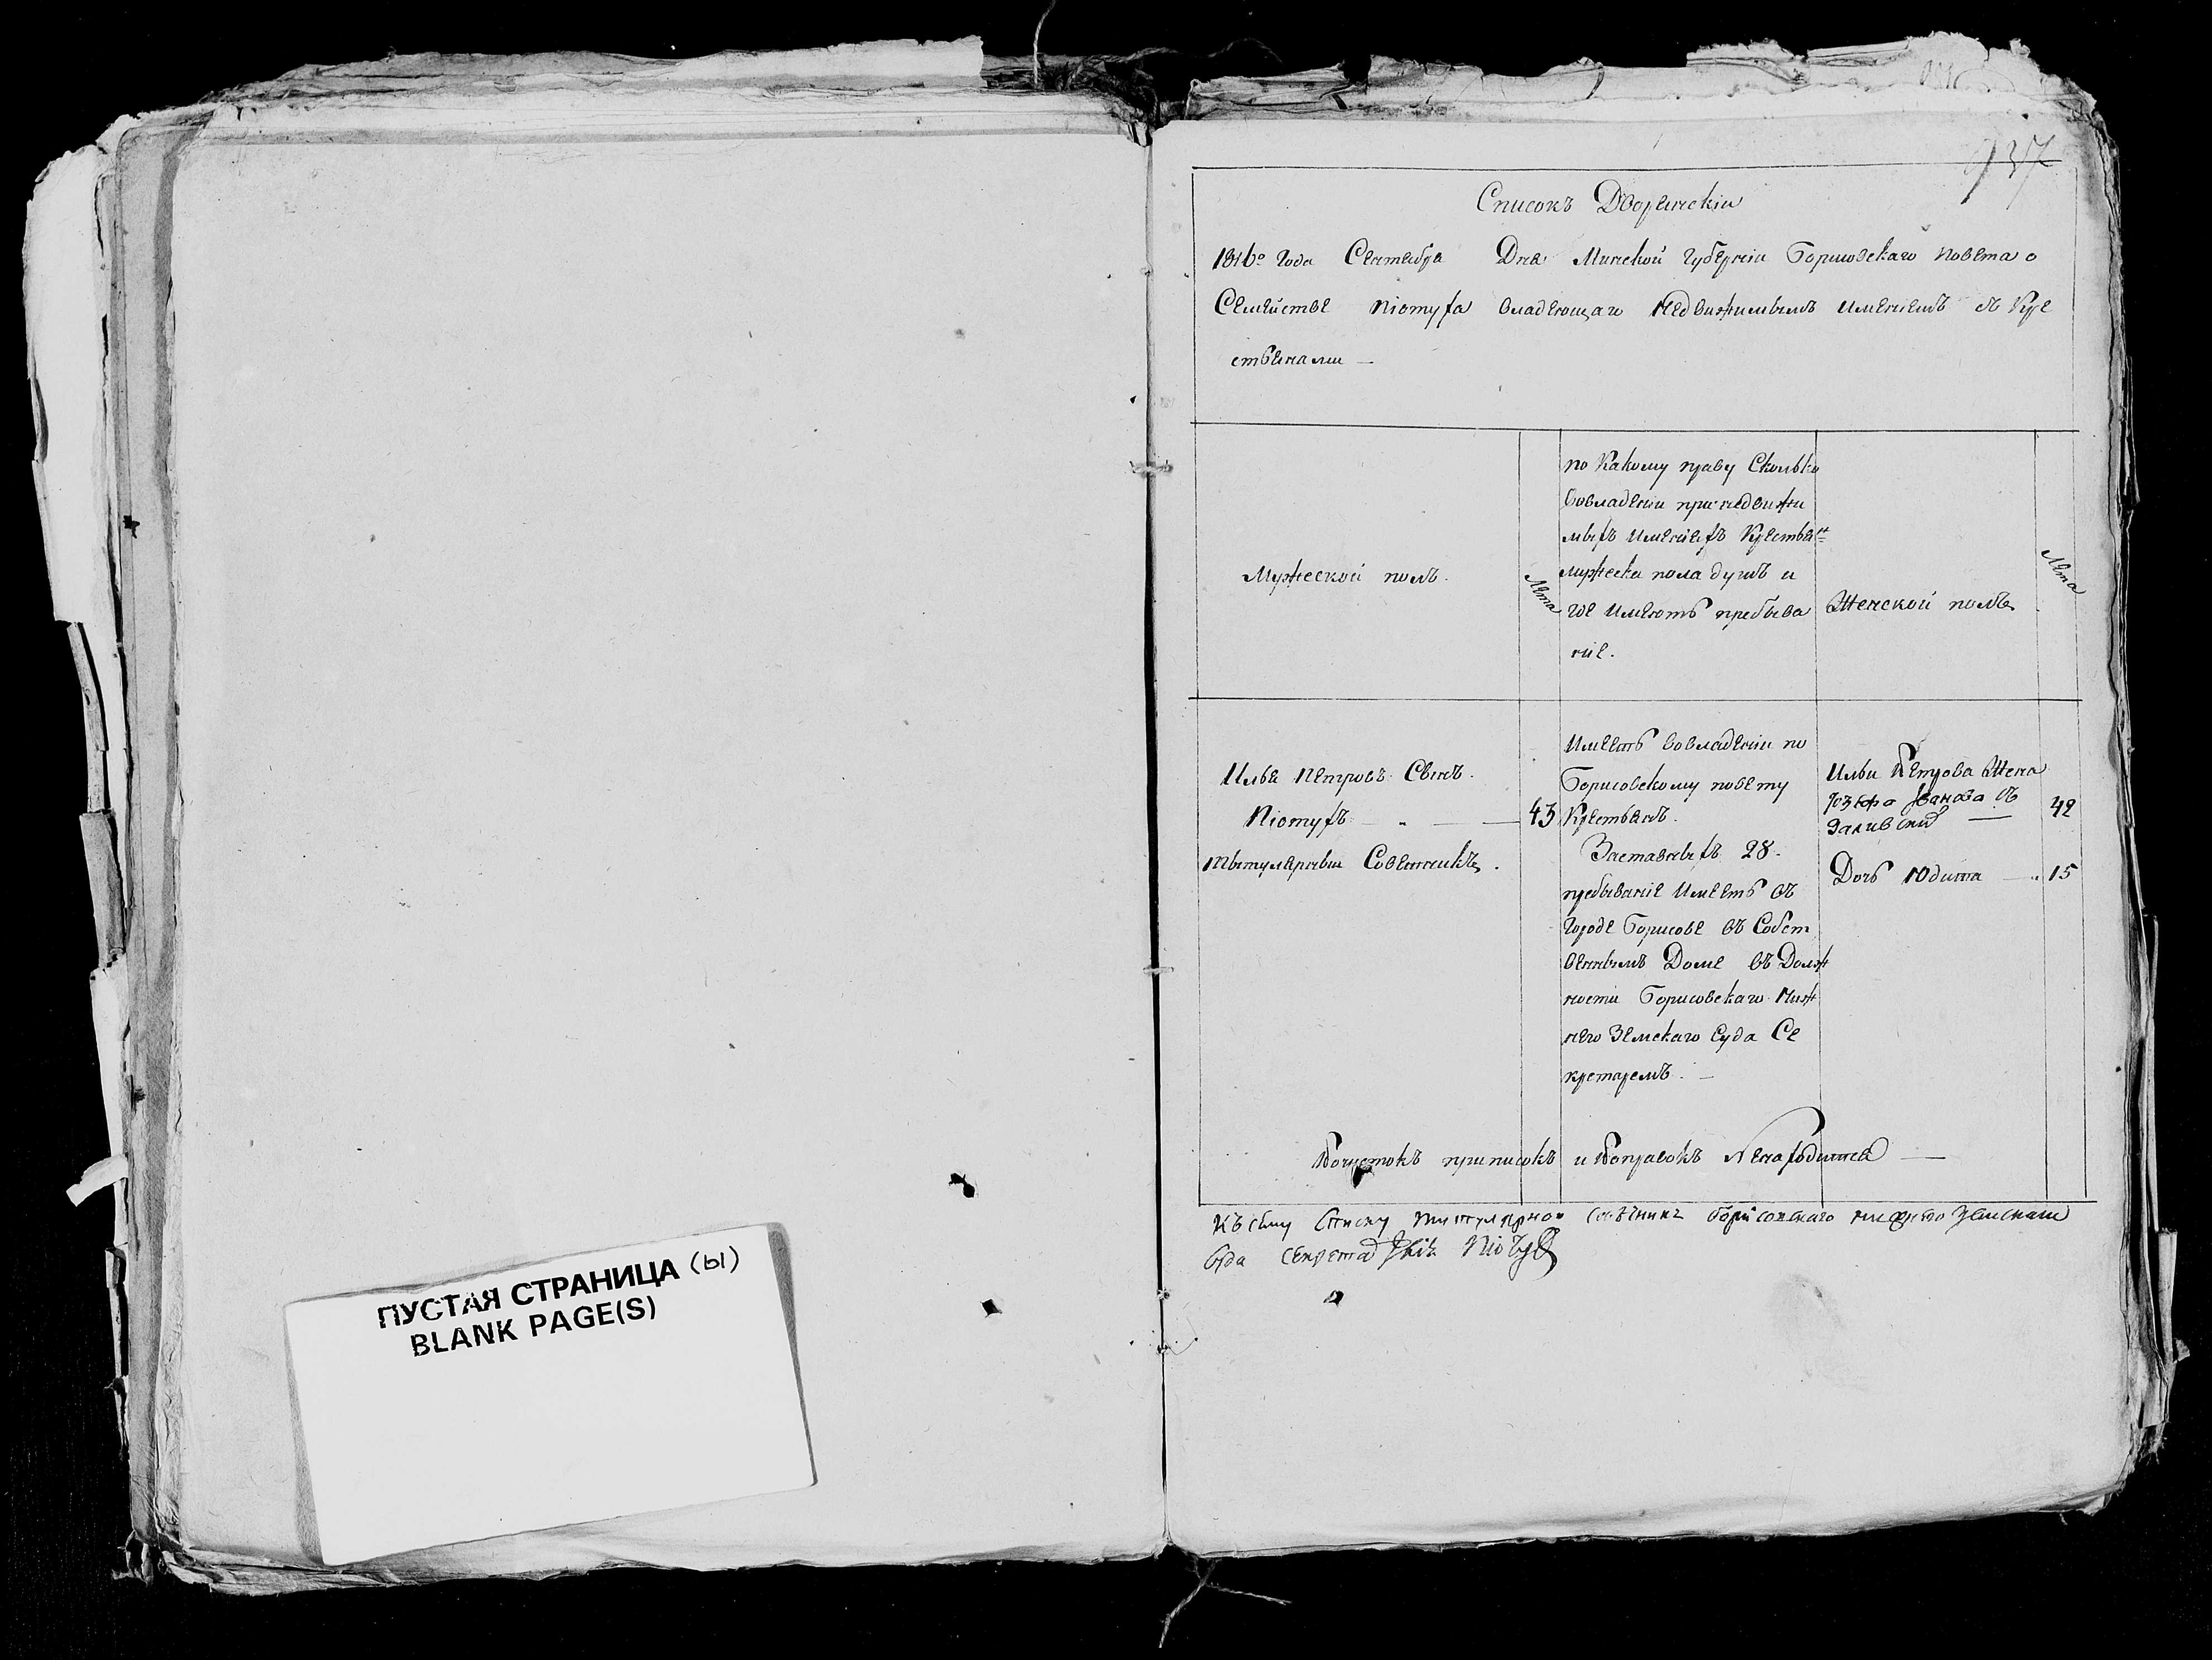 937
Списокъ Дворянскій
1816го Года Сентября Дня Минской губерніи Борисовскаго повѣта о
Семействе Піотуха владеющаго недвижимымъ имениемъ съ Кре
стьянами —
по какому праву Сколько
вовладении при недвижи
мыхъ имениехъ Крестьян
мужеска пола душъ и
где имеютъ пребыва
ние.
Мужеской полъ.
Лета
Женской полъ
Лета
Илья Петровъ Сынъ
Піотухъ — 43
Титулярный Советникъ.
Имеетъ вовладении по
Борисовскому повету
Крестьянъ.
Заставныхъ 28.
пребывание имеетъ въ
городе Борисове въ Собст
венномъ Доме въ Долж
ности Борисовскаго Ниж
него Земскаго Суда Се
кретаремъ. —
Ильи Петрова Жена
Иванова съ
— 42
Дочь Юдита — 15
Почистокъ приписокъ и Поправокъ Ненаходится —
Къ сему Списку титулярной советникъ борисовского нижнего Земскаго
Суда Секретар Піотух
ПУСТАЯ СТРАНИЦА (Ы)
BLANK PAGE(S)